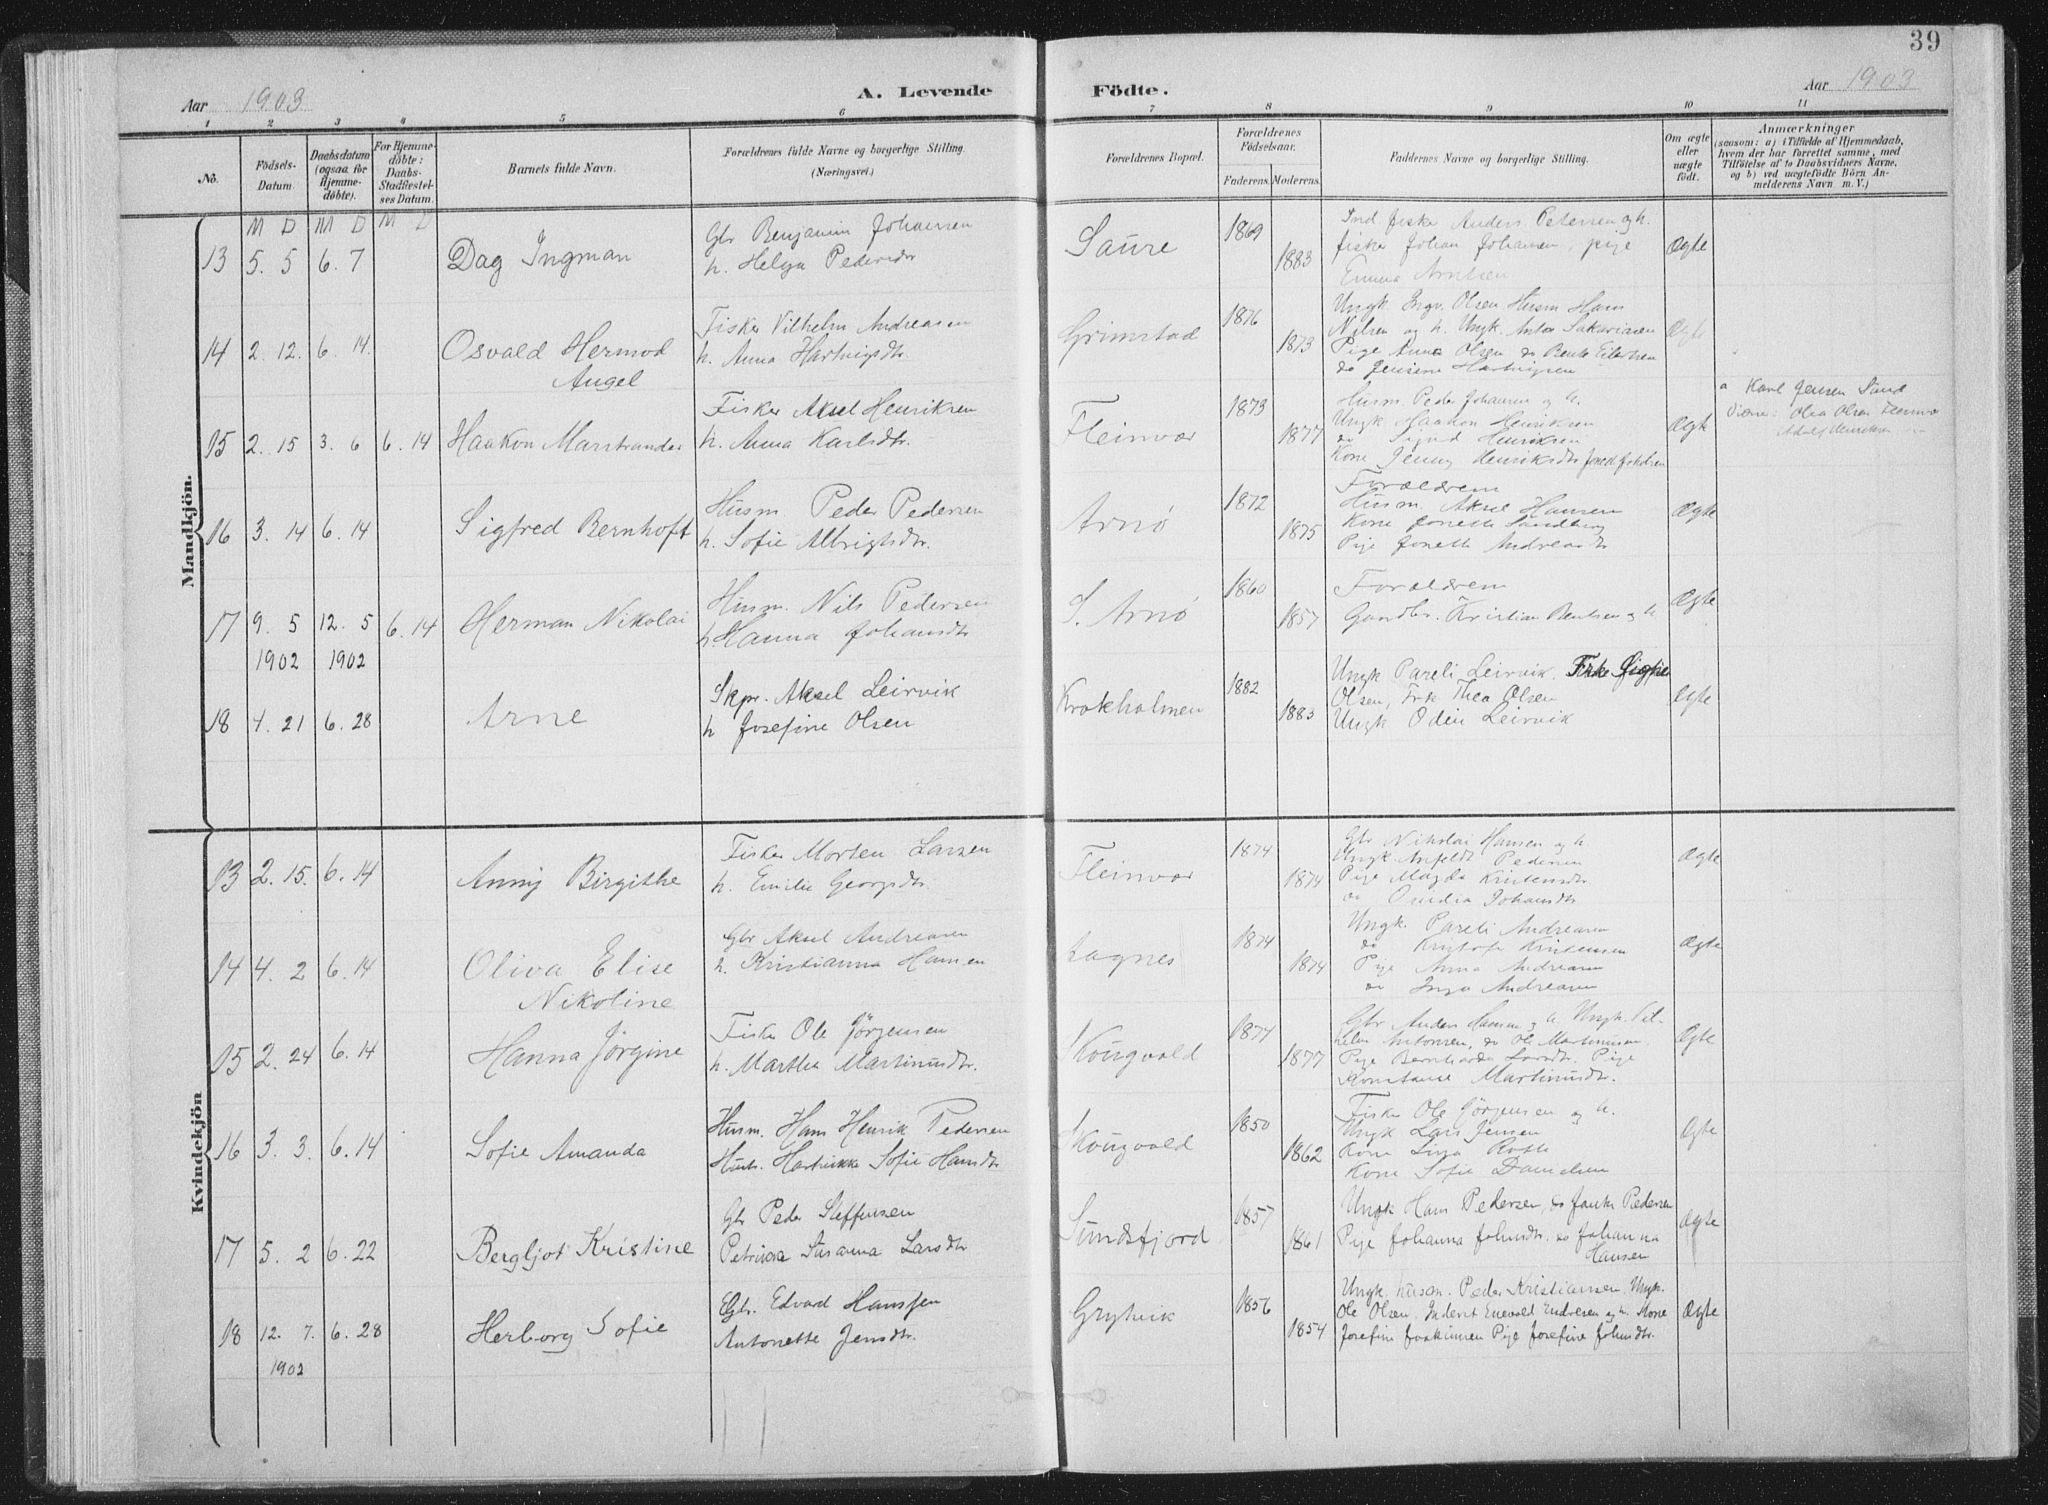 39
Aar 1903
A. Levende Födte.
Aar 1903
1 2 3 4 5 6 7 8 9 10 11
No.
Födsels-Datum.
Daabsdatum (ogsaa for Hjemmedöbte).
For Hjemmedöbte: Daabs-Stadfæstelses Datum.
Barnets fulde Navn.
Forældrenes fulde Navne og borgerlige Stilling.
(Næringsvei.)
Forældrenes Bopæl.
Forældrenes Födselsaar.
Faderens. Moderens.
Faddernes Navne og borgerlige Stilling.
Om ægte eller uægte födt.
Anmærkninger
(saasom: a) i Tilfælde af Hjemmedaab,
hvem der har forrettet samme, med
Tilföielse af to Daabsvidners Navne,
og b) ved uægtefödte Börn An-
melderens Navn m. V.)
M D M D M D
Mandkjön.
13 5. 5 6. 7 Dag Ingman
Gbr Benjamin Johansen
h. Helga Pedersdtr
Saure 1869 1883
Ind fisker Anders Petersen og h.
fisker Johan Johansen, pige
Emma Arntsen
Ægte
14 2. 12. 6. 14. Osvald Hermod
Angel
Fisker Vilhelm Andreasen
h. Anna Hartvigsdtr.
Grimstad 1876 1873
Ungk. Ingv. Olsen Husm Hans
Nilsen og h. Ungk. Anton Sakariasen
Pige Anna Olsen do Bente Eilertsen
do Jensine Hartvigsen
Ægte
15 2. 15 3. 6 6. 14 Haakon Marstrander
Fisker Aksel Henriksen
h. Anna Karlsdtr.
Fleinvær 1873 1877
Husm. Peder Johansen og h.
Ungk Haakon Henriksen
do Sigurd Henriksen
Kone Jenny Henriksdtr
Ægte
a Karl Jensen Sund
Vidne: Olea Olsen Fleinvær
Adolf Henriksen
16 3. 14 6. 14 Sigfred Bernhoft
Husm. Peder Pedersen
h. Sofie Albrigtsdtr.
Arnø 1872 1875
Forældrene
Husm. Aksel Hansen
Kone Jonette Sandberg
Pige Jonette Andreasdtr
Ægte
17 9. 5 12. 5 6. 14 Herman Nikolai
1902 1902
Husm. Nils Pedersen
h. Hanna Johansdtr
S. Arnø 1860 1857
Forældrene
Gaardbr. Kristian Bentsen og h
Ægte
18 4. 21 6. 28 Arne
Skpr. Aksel Leirvik
h Josefine Olsen
Krokholmen 1882 1883
Ungk Pareli Leirvik. Frk
Olsen, Frk Thea Olsen
Ungk Odin Leirvik
Ægte
Kvindekjön
13 2. 15. 6. 14 Anny Birgithe
Fisker Morten Larsen
h. Emilie Georgsdtr.
Fleinvær 1874 1874
Gbr Nikolai Hansen og h
Ungk. Anfeldt Pedersen
Pige Magda Kristensdtr
do Ovidia Johansdtr
Ægte
14 4. 2 6. 14 Oliva Elise
Nikoline
Gbr Aksel Andreasen
h. Kristianna Hansen
Aagnes 1874 1874
Ungk. Pareli Andreasen
do Kristofer Kristensen
Pige Anna Andreasen
do Inga Andreasen
Ægte
15 2. 24 6. 14 Hanna Jørgine
Fisker Ole Jørgensen
h. Marthe Martinusdtr.
Skougvold 1874 1877
Gbr Anders Hansen og h. Ungk. Vil-
helm Antonsen, do Ole Martinussen
Pige Bernharda Larsdtr. Pige
Konstanse Martinusdtr.
Ægte
16 3. 3. 6. 14 Sofie Amanda
Husm. Hans Henrik Pedersen
Hustr. Hartvikke Sofie Hansdtr
Skougvold 1850 1862
Fisker Ole Jørgensen og h.
Ungk Lars Jensen
Kone Lina
Kone Sofie Danielsen
Ægte
17 5. 2 6. 22 Bergljot Kristine
Gbr Peder Steffensen
Petrikka Susanna Larsdtr
Sundsfjord 1857 1861
Ungk Hans Pedersen, do Pedersen
Pige Johanna Johnsdtr. do Johanna
Hansen
Ægte
18 12. 7. 6. 28 Herborg Sofie
1902
Gbr. Edvard Hanssen
Antonette Jensdtr.
Grytvik 1856 1854
Ungk. husm. Peder Kristiansen, Ungk.
Ole Olsen, Inderst Enevold Endresen og h. Kone
Josefine Joakimsen Pige Josefine Johnsdtr.
Ægte